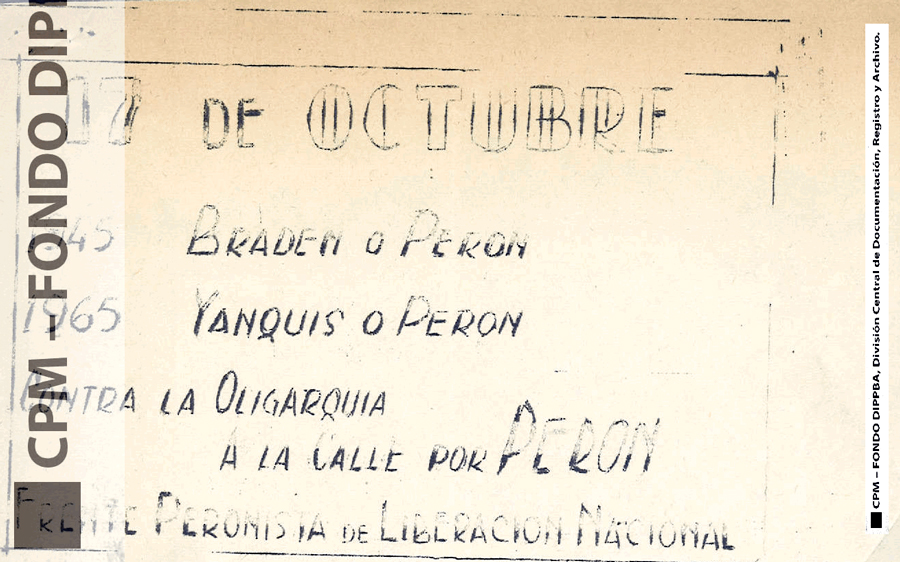 17 DE OCTUBRE
1945 BRADEN O PERON
1965 YANQUIS O PERON
CONTRA LA OLIGARQUIA
A LA CALLE POR PERON
FRENTE PERONISTA DE LIBERACION NACIONAL
CPM – FONDO DIP
CPM – FONDO DIPPBA, División Central de Documentación, Registro y Archivo.